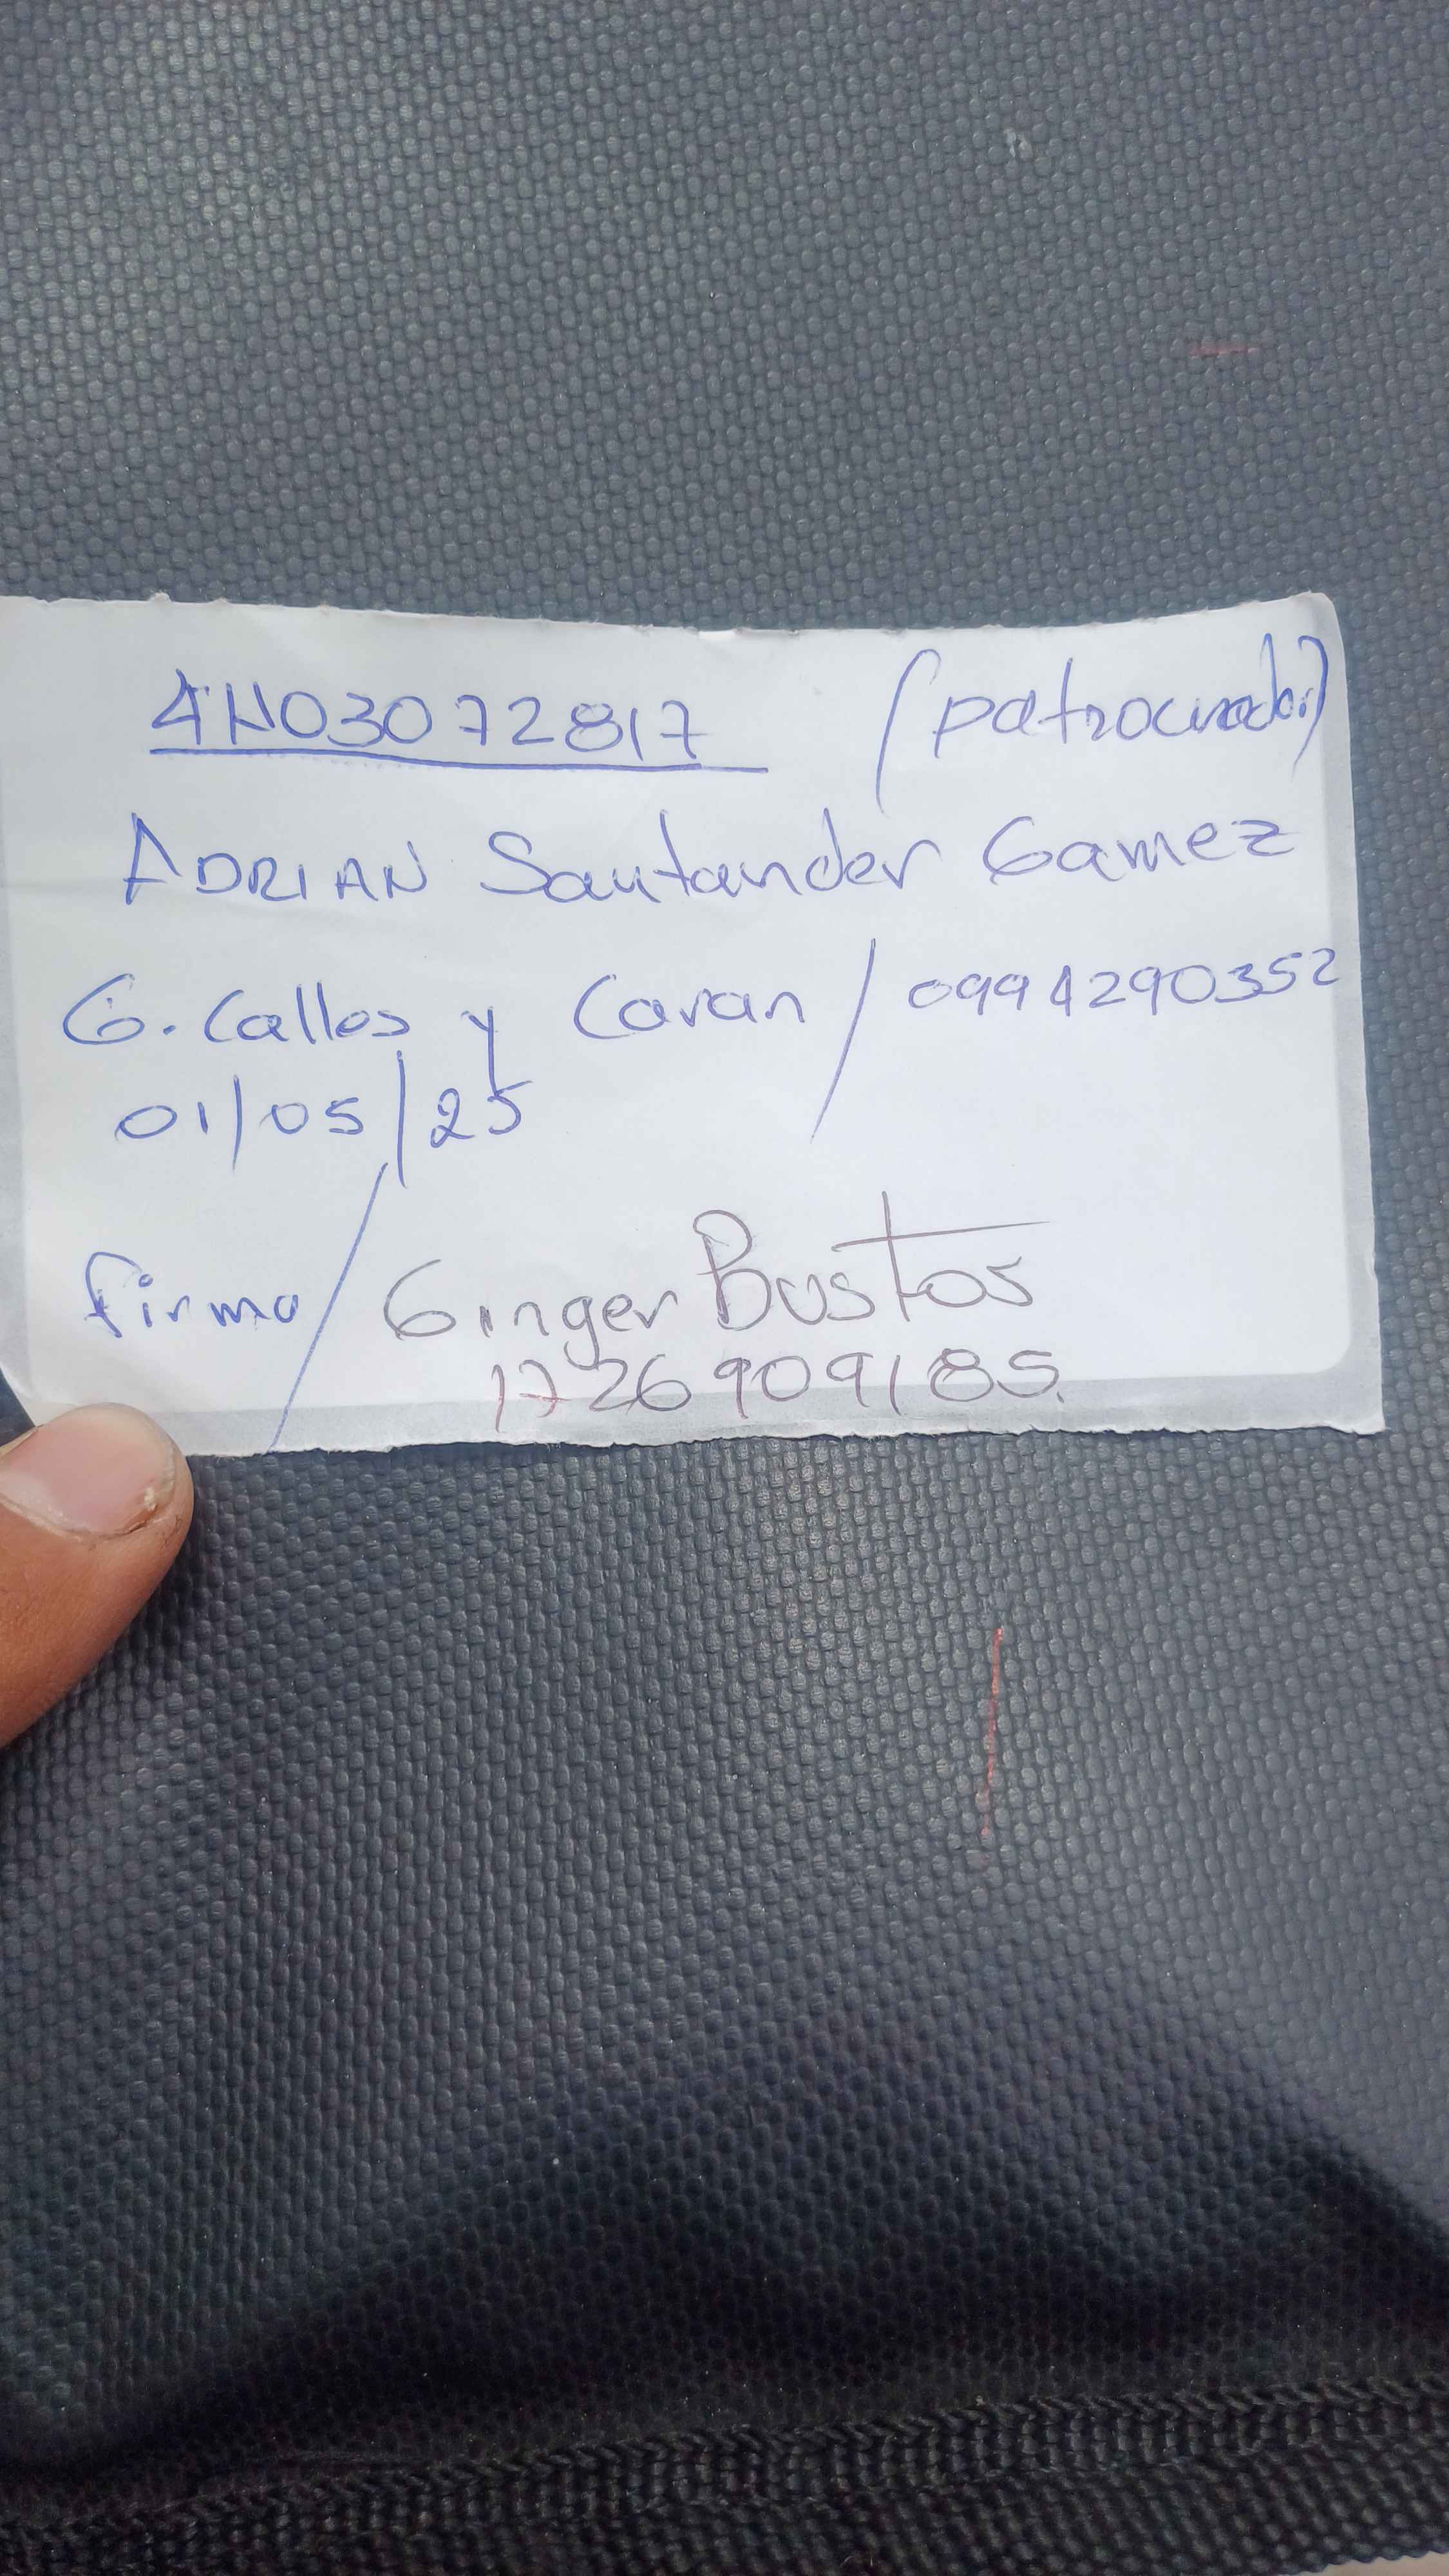 4N03072817 (patrocinador)
ADRIAN Santander Gamez
G. Calles y Caran / 0994290352
01/05/25
firma / Ginger Bustos
1726909185.